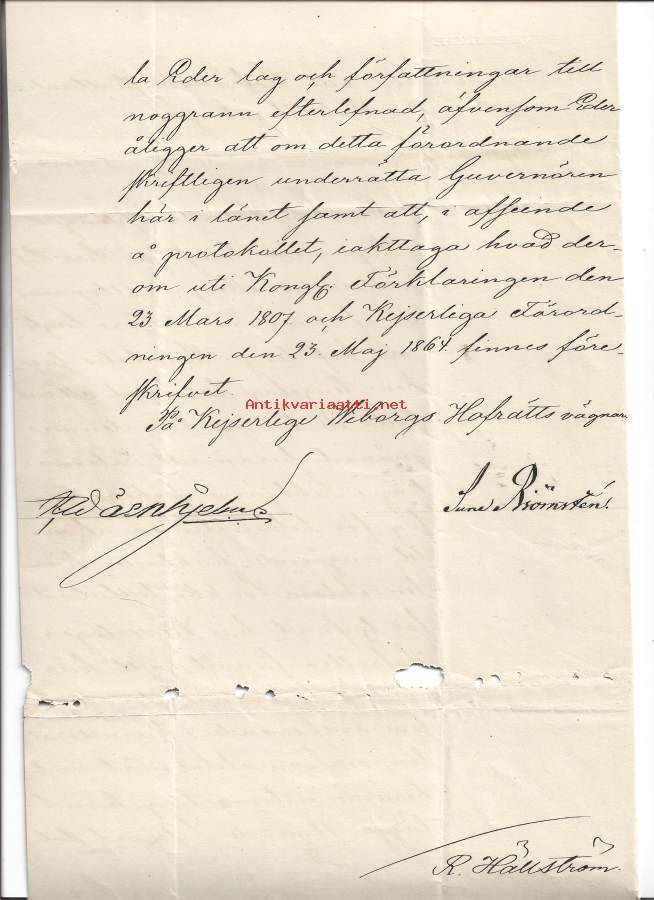 la Eder lag och författningar till
noggrann efterlefnad, äfvensom Eder
åligger att om detta förordnande
skriftligen underrätta Guvernören
här i länet samt att, i afseende
å protokollet, iakttaga hvad der-
om uti Kongl. Förklaringen den
23. Mars 1807 och Kejserliga Förord-
ningen den 23. Maj 1864 finnes före-
skrifvet.
Antikvariaatti.net
På Kejserlige Wiborgs Hofrätts vägnar.
Sune
R. Hällström.